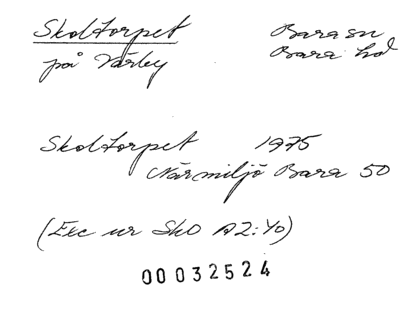 Skoltorpet Bara sn
på Värby Bara hd
Skoltorpet 1975
Närmiljö Bara 50
(Exc ur SkO A2:40)
00032524